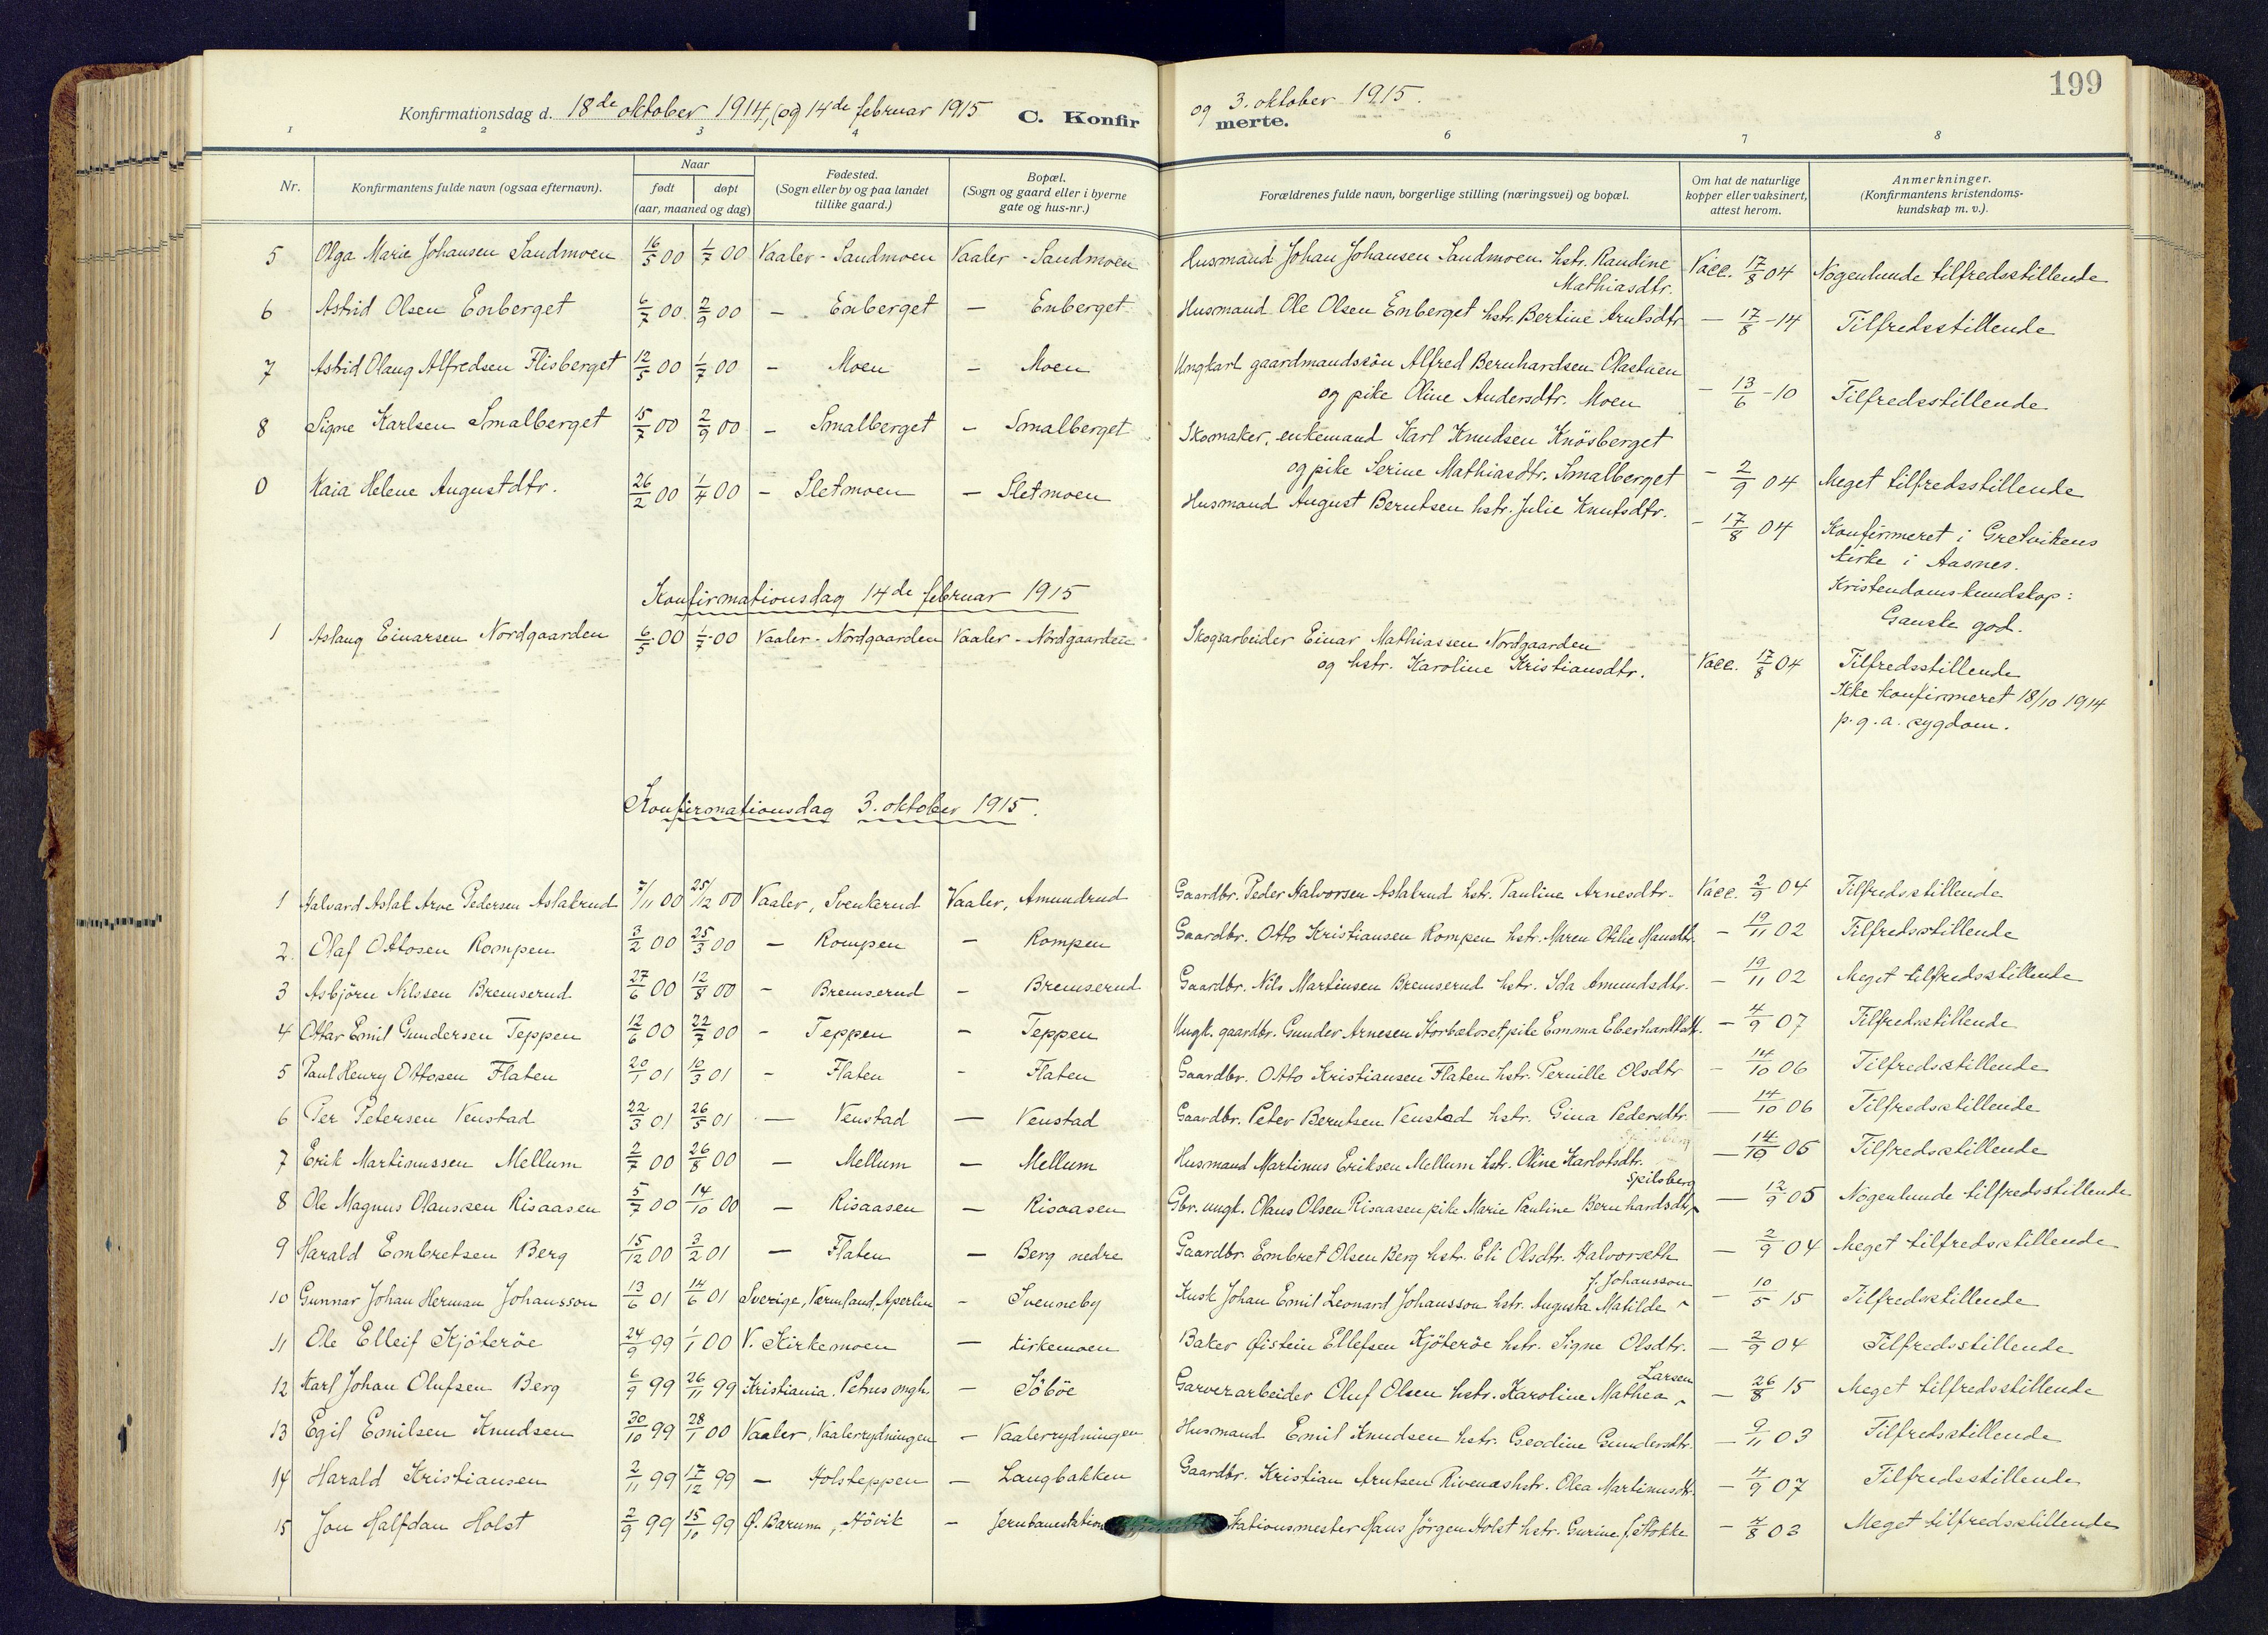 199
Konfirmationsdag d. 18de oktober 1914, (og 14de februar 1915 C. Konfir og 3. oktober 1915. merte.
1 2 3 4 6 7 8
Nr. Konfirmantens fulde navn (ogsaa efternavn). Naar født døpt (aar, maaned og dag) Fødested. (Sogn eller by og paa landet tillike gaard.) Bopæl. (Sogn og gaard eller i byerne gate og hus-nr.) Forældrenes fulde navn, borgerlige stilling (næringsvei) og bopæl. Om hat de naturlige kopper eller vaksinert, attest herom. Anmerkninger. (Konfirmantens kristendoms-kundskap m. v.).
5 Olga Marie Johansen Sandmoen 16/5 00 1/7 00 Vaaler - Sandmoen Vaaler - Sandmoen Husmand Johan Johansen Sandmoen hstr. Randine Mathiasdtr. Vacc. 17/8 04 Nogenlunde tilfredsstillende
6 Astrid Olsen Enberget 6/7 00 2/9 00 - Enberget - Enberget Husmand Ole Olsen Enberget hstr. Bertine Arntsdtr - 17/8 - 14 Tilfredsstillende
7 Astrid Olaug Alfredsen Flisberget 12/5 00 1/7 00 - Moen - Moen Ungkarl gaardmandssön Alfred Bernhardsen Olastuen
og pike Oline Andersdtr. Moen - 13/6 - 10 Tilfredsstillende
8 Signe Karlsen Smalberget 15/7 00 2/9 00 - Smalberget - Smalberget Skomaker, enkemand Karl Knudsen Knösberget
og pike Serine Mathiasdtr. Smalberget - 2/9 04 Meget tilfredsstillende
0 Kaia Helene Augustdtr. 26/2 00 1/4 00 - Sletmoen - Sletmoen Husmand August Berntsen hstr. Julie Knutsdtr. - 17/8 04 Konfirmeret i Gretvikens
kirke i Aasnes.
Kristendomskundskap:
Ganske god.
Konfirmationsdag 14de februar 1915
1 Aslaug Einarsen Nordgaarden 6/5 00 1/7 00 Vaaler - Nordgaarden Vaaler - Nordgaarden Skogsarbeider Einar Mathiassen Nordgaarden
og hstr. Karoline Kristiansdtr. Vacc. 17/8 04 Tilfredsstillende
Ikke konfirmeret 18/10 1914
p. g. a. sygdom.
Konfirmationsdag 3. oktober 1915.
1 Halvard Aslak Arve Pedersen Aslakrud 7/11 00 25/12 00 Vaaler, Svenkerud Vaaler, Amundrud Gaardbr. Peder Halvorsen Aslakrud hstr. Pauline Arnesdtr. Vacc. 2/9 04 Tilfredsstillende
2. Olaf Ottosen Rompen 3/2 00 25/3 00 - Rompen - Rompen Gaardbr. Otto Kristiansen Rompen hstr. Maren Otilie Hansdtr. - 19/11 02 Tilfredsstillende
3 Asbjörn Nilssen Bremserud 27/6 00 12/8 00 - Bremserud - Bremserud Gaardbr. Nils Martinsen Bremserud hstr. Ida Amundsdtr. - 19/11 02 Meget tilfredsstillende
4 Ottar Emil Gundersen Teppen 12/6 00 22/7 00 - Teppen - Teppen Ungk. gaardbr. Gunder Arnesen Storbækoset, pike Emma Eberhardtsdtr. - 4/9 07 Tilfredsstillende
5 Paul Henry Ottosen Flaten 20/1 01 10/3 01 - Flaten - Flaten Gaardbr. Otto Kristiansen Flaten hstr. Pernille Olsdtr - 14/10 06 Tilfredsstillende
6 Per Petersen Venstad 22/3 01 26/5 01 - Venstad - Venstad Gaardbr. Peter Berntsen Venstad hstr. Gina Pedersdtr. - 14/10 06 Tilfredsstillende
7 Erik Martinussen Mellum 2/7 00 26/8 00 - Mellum - Mellum Husmand Martinus Eriksen Mellum hstr. Oline Karlotsdtr. - 14/10 05 Tilfredsstillende
8 Ole Magnus Olaussen Risaasen 5/7 00 14/10 00 - Risaasen - Risaasen Gbr. ungk. Olaus Olsen Risaasen pike Marie Pauline Bernhardsdtr. Spilsberg - 12/9 05 Nogenlunde tilfredsstillende
9 Harald Embretsen Berg 15/12 00 3/2 01 - Flaten - Berg nedre Gaardbr. Embret Olsen Berg hstr. Eli Olsdtr. Halvorseth - 2/9 04 Meget tilfredsstillende
10 Gunnar Johan Herman Johansson 13/6 01 14/6 01 Sverige, Værmland, Aperlin - Svenneby Kusk Johan Emil Leonard Johansson hstr. Augusta Matilde f. Johansson - 10/5 15 Tilfredsstillende
11 Ole Elleif Kjöteröe 24/9 99 1/1 00 V. Kirkemoen - Kirkemoen Baker Øistein Ellefsen Kjöteröe hstr. Signe Olsdtr. - 2/9 04 Tilfredsstillende
12 Karl Johan Olufsen Berg 6/9 99 26/11 99 Kristiania. Petrus mgh. - Söböe Garverarbeider Oluf Olsen hstr. Karoline Mathea Larsen - 26/8 15 Meget tilfredsstillende
13 Egil Emilsen Knudsen 30/10 99 28/1 00 Vaaler, Vaalerrydningen - Vaalerrydningen Husmand Emil Knudsen hstr. Geodine Gundersdtr. - 9/11 03 Tilfredsstillende
14 Harald Kristiansen 2/11 99 17/12 99 - Holsteppen - Langbakken Gaardbr. Kristian Arntsen Rivenes hstr. Olea Martinusdtr. - 4/9 07 Tilfredsstillende
15 Jon Halfdan Holst 2/9 99 15/10 99 Ø. Bærum, Hövik - Jernbanestation Stationsmester Hans Jörgen Holst hstr. Gurine f. Stokke - 4/8 03 Meget tilfredsstillende